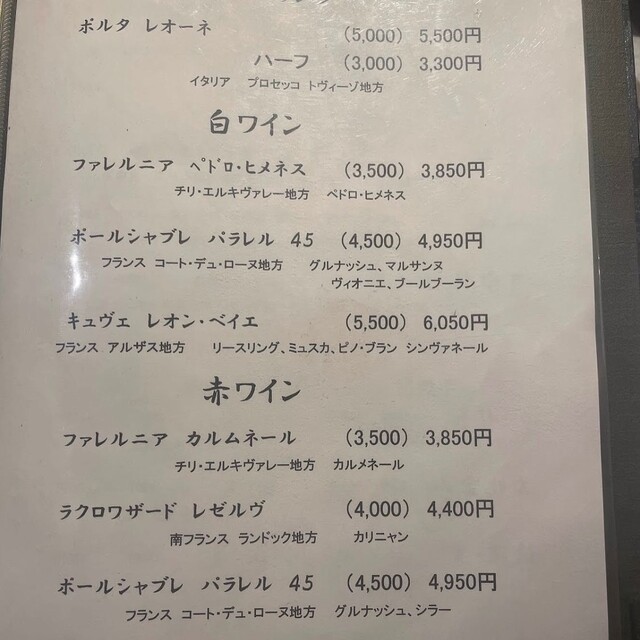 ポルタ レオーネ (5,000) 5,500円
ハーフ (3,000) 3,300円
イタリア プロセッコ トヴィーゾ地方
白ワイン
ファレルニア ペドロ・ヒメネス (3,500) 3,850円
チリ・エルキヴァレー地方 ペドロ・ヒメネス
ポールシャブレ パラレル 45 (4,500) 4,950円
フランス コート・デュ・ローヌ地方 グルナッシュ、マルサンヌ
ヴィオニエ、ブールブーラン
キュヴェ レオン・ベイエ (5,500) 6,050円
フランス アルザス地方 リースリング、ミュスカ、ピノ・ブラン シンヴァネール
赤ワイン
ファレルニア カルムネール (3,500) 3,850円
チリ・エルキヴァレー地方 カルメネール
ラクロワザード レゼルヴ (4,000) 4,400円
南フランス ランドック地方 カリニャン
ポールシャブレ パラレル 45 (4,500) 4,950円
フランス コート・デュ・ローヌ地方 グルナッシュ、シラー